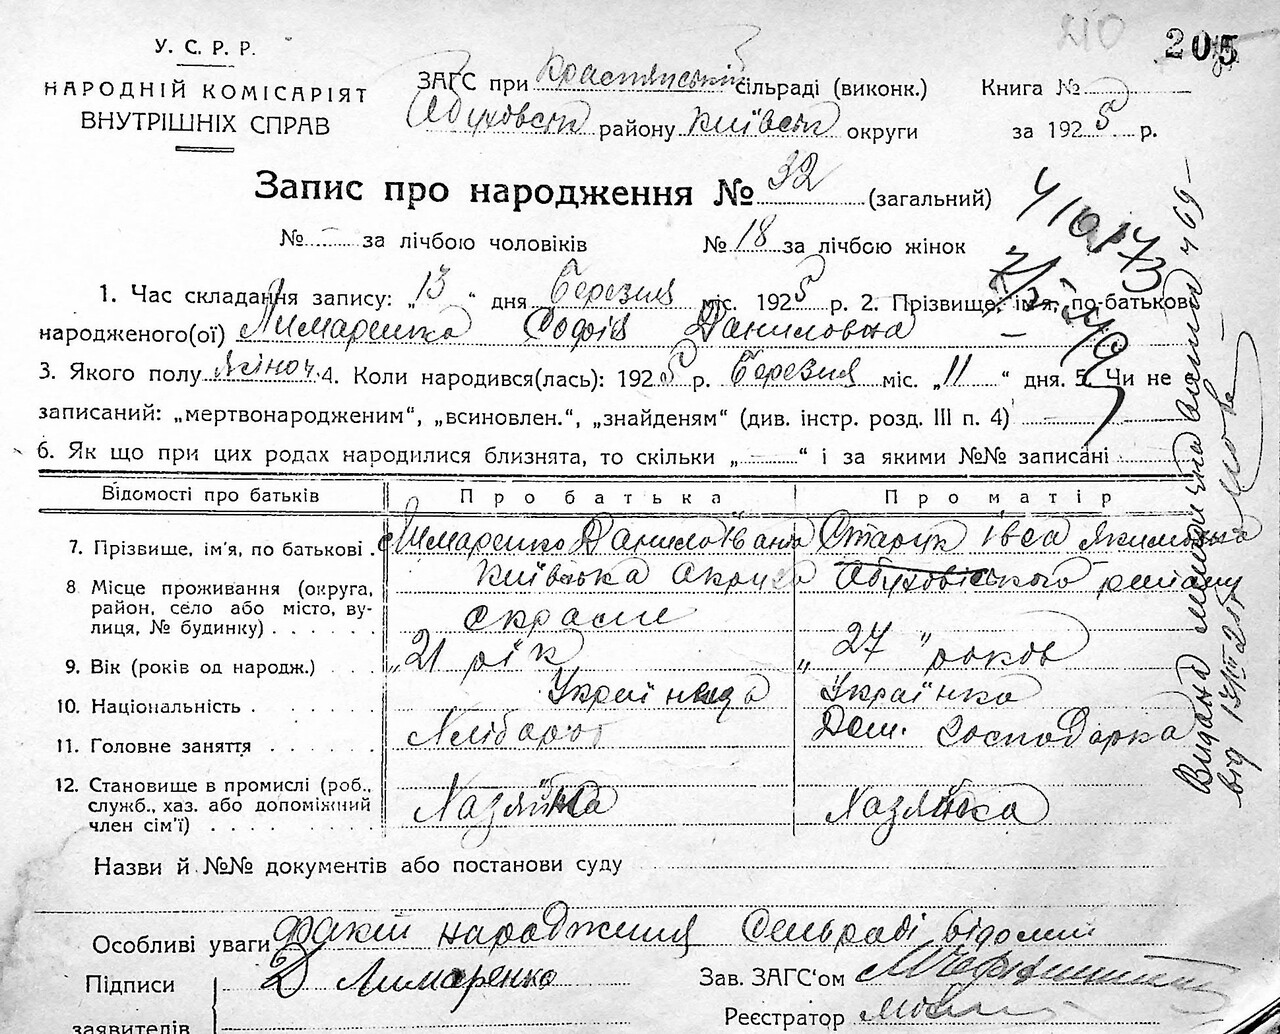 210 205
У. С. Р. Р.
НАРОДНІЙ КОМІСАРІЯТ
ВНУТРІШНІХ СПРАВ
ЗАГС при Краснянській сільраді (виконк.) Книга №
Обуховськ району Київськ округи за 1925 р.
Запис про народження № 32 (загальний)
№ - за лічбою чоловіків № 18 за лічбою жінок
1. Час складання запису: „13“ дня Березня міс. 1925 р. 2. Прізвище, ім'я, по-батькові
народженого(ої) Лимаренко Софія Даниловна
3. Якого полу жіноч. 4. Коли народився(лась): 1925 р. Березня міс. „11“ дня. 5. Чи не
записаний: „мертвонародженим“, „всиновлен.“, „знайденям“ (див. інстр. розд. III п. 4)
6. Як що при цих родах народилися близнята, то скільки „ “ і за якими №№ записані
Відомості про батьків Про батька Про матір
7. Прізвище, ім'я, по батькові . Лимаренко Данило Іванов Старук Івга Якимовна
8 Місце проживання (округа, Київська Округа Обуховського району
район, село або місто, ву-
лиця, № будинку) . . . . . . с Красне
9. Вік (років од народж.) . . . „21 рік „27“ роков
10. Національність . . . . . . Українець Українка
11. Головне заняття . . . . . . Хлібороб Дом. Господарка
12. Становище в промислі (роб.,
служб., хаз. або допоміжний Хазяїн Хазяйка
член сім'ї) . . . . . . . . .
Назви й №№ документів або постанови суду
Особливі уваги Факт народження Сельраді відомий
Підписи Д Лимаренко Зав. ЗАГС'ом
заявителів Реєстратор
Видана
від